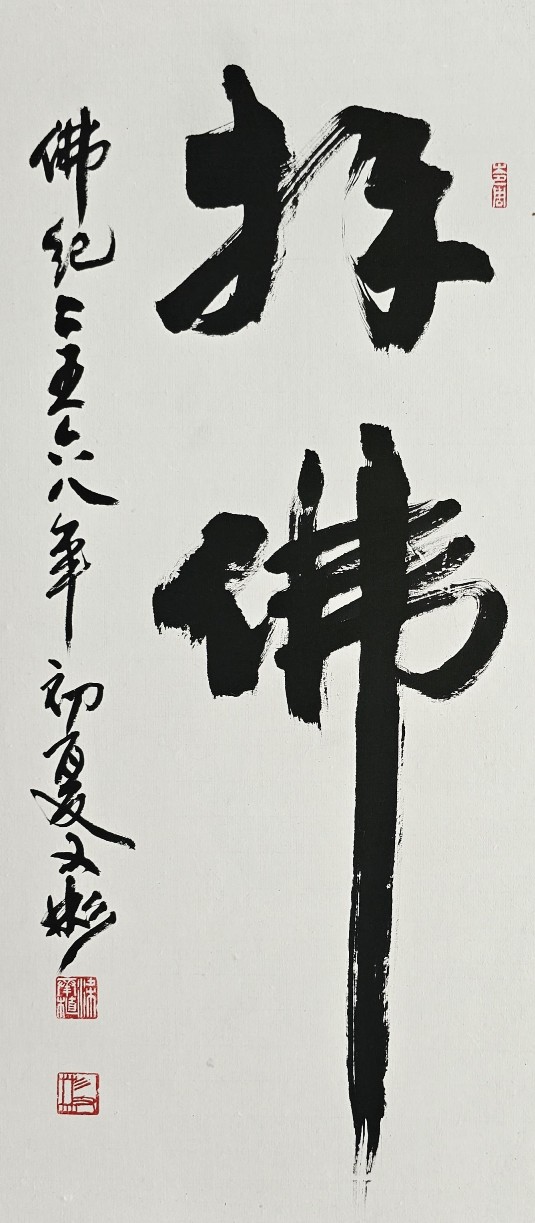 拜佛
佛紀二五六八年初夏又彬